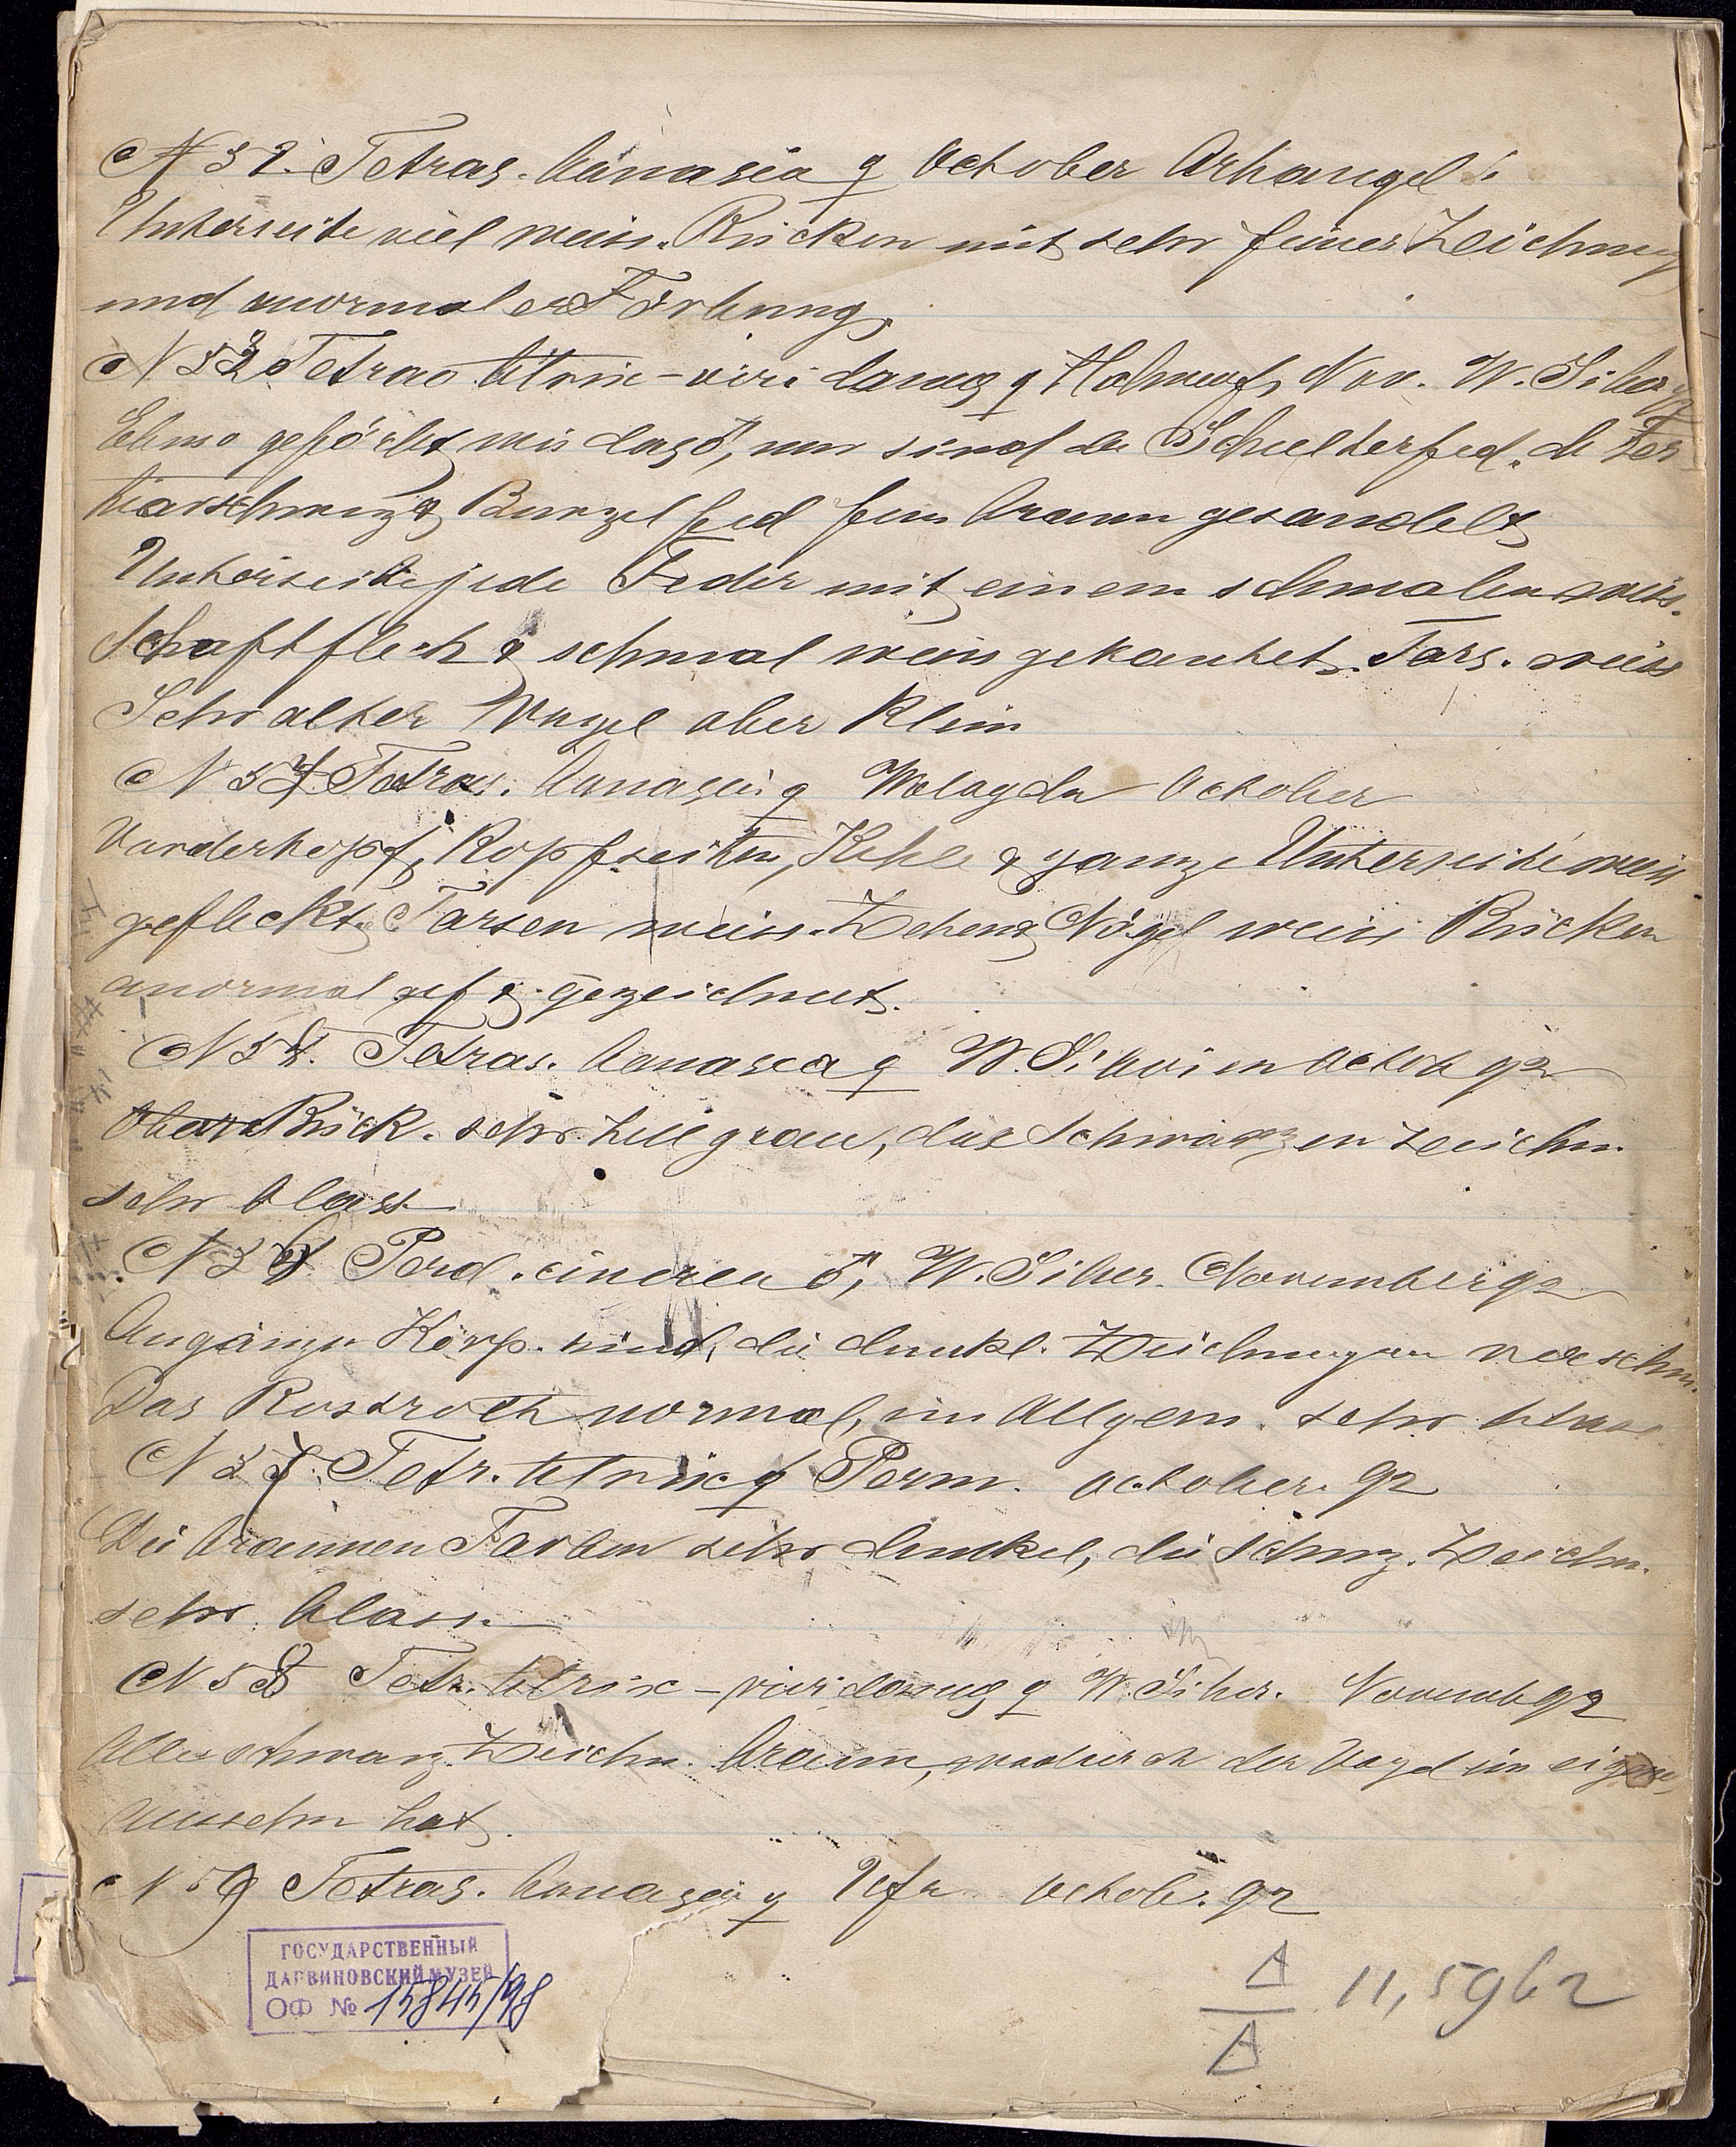 N 52. Tetras. bonasia ♀ October Arhangel
Unterseite viel weiss. Rücken mit sehr feiner Zeichnung
und anormaler Färbung
N 53 Tetrao tetrix-viridanus ♀ Nov. W. Siber
Ebenso gefärbt wie das ♂, nur sind die Schulterfed. die Ter-
tiärschwing & Bürzelfed fein braun gesandelt
Unterseite jede Feder mit einem schmalen weiss.
Schaftfleck & schmal weiss gekantet. Tars. weiss
Sehr alter Vogel aber klein
N 54 Tetras. bonasia ♀ Wologda October
Vorderkopf, Kopfseiten, Kehle & ganze Unterseite weiss
gefleckt Tarsen weiss. Zehen & Nägel weiss Rücken
anormal gef & gezeichnet.
N 55. Tetras. bonasia ♀ W. Sibirien Octob 92
Rück. sehr hellgrau, die schwarzen Zeichn.
sehr blass
N 56 Perd. cinerea ♂, W. Siber. November 92
Am ganzen Körp. sind die dunkl. Zeichnungen verschw.
Das Rostroth normal, im Allgem. sehr blass
N 57 Tetr. tetrix ♀ Perm. October. 92
Die braunen Farben sehr dunkel, die schwz. Zeichn.
sehr blass.
N 58 Tetr. tetrix-viridanus ♀ W. Siber. Novemb 92
Alle schwarz. Zeichn. braun, wodurch der Vogel ein eigene
aussehn hat.
N 59 Tetras. bonasia ♀ Ufa octob. 92
ГОСУДАРСТВЕННЫЙ
ДАРВИНОВСКИЙ МУЗЕЙ
ОФ № 15845/98
11,5962